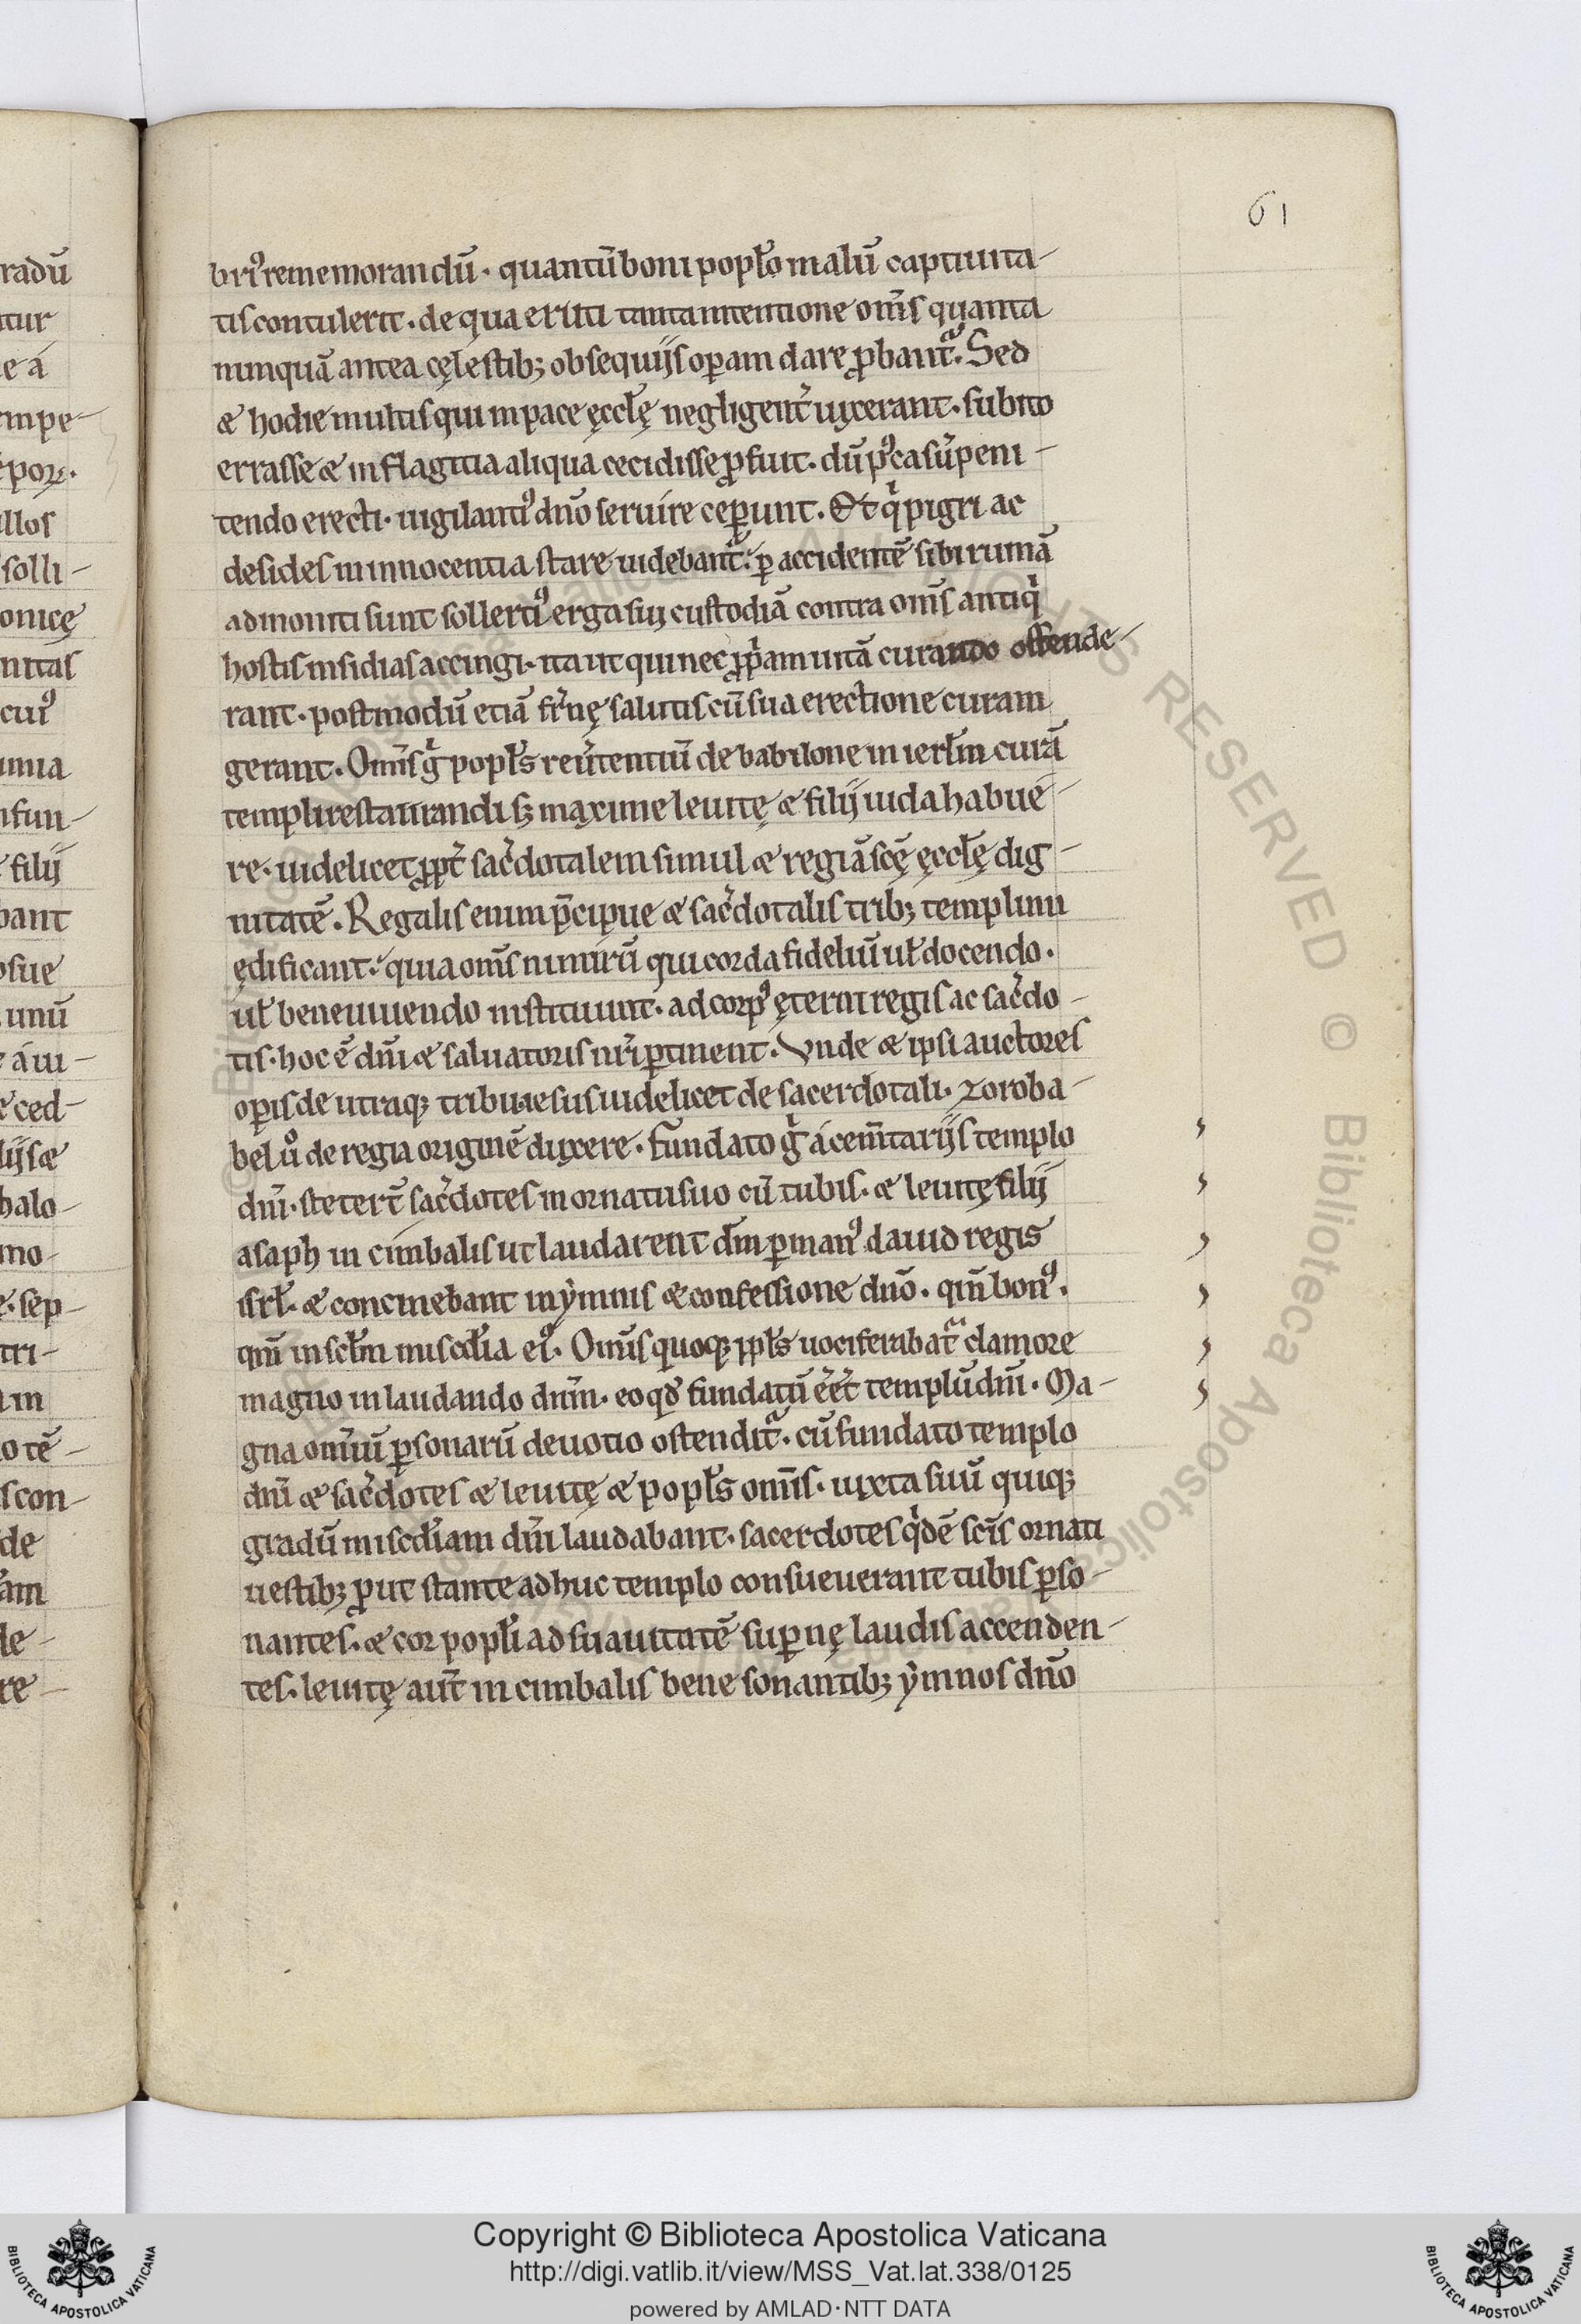 61
bri᷒ rememorandū· quantū boni popl̄o malū captiuita-
tis contulerit· de qua eruti tanta intentione om̄s quanta
nunquā antea cęlestib; obsequiis operam dare ꝓbant᷑. Sed
& hodie multis qui in pace ęccłę negligent᷑ uixerant· subito
errasse & in flagitia aliqua cecidisse ꝓfuit· dū p᷒ casū peni-
tendo erecti· uigilanti᷒ dn̄o seruire ceperunt. Et qͥ pigri ac
desides in innocentia stare uidebant᷑· ꝑ accidentē sibi ruinā
admoniti sunt sollerti᷒ erga sui custodiā contra om̄s antiqͥ
hostis insidias accingi· ita ut qui nec ꝓp̄am uitā curando offende-
rant· postmodū etiā fr̄nę salutis cū sua erectione curam
gerant. Om̄s gͥ popl̄s reūtentiū de babilone in ierl̄m curā
templi restaurandi s; maxime leuitę & filii iuda habue-
re· uidelicet ꝓpt᷑ sac̄dotalem simul & regiā sc̄ę ęccłę dig-
nitatē. Regalis enim p̄cipue & sac̄dotalis trib; templum
ędificant· quia om̄s nimirū qui corda fideliū ul̄ docendo·
ul̄ bene uiuendo instituunt· ad corp᷒ ęterni regis ac sac̄do-
tis· hoc ē dn̄i & saluatoris nr̄i ꝑtinent. Vnde & ipsi auctores
oꝑis de utraq; tribu· iesus uidelicet de sacerdotali· zoroba-
bel ů de regia originē duxere. Fundato gͥ á cem̄tariis templo
dn̄i· stetert̄ sac̄dotes in ornatu suo cū tubis· & leuitę filii
asaph in cimbalis ut laudarent dm̄ ꝑ man᷒ dauid regis
isrl̄· & concinebant in ẏmnis & confessione dn̄o· qm̄ bon᷒·
qm̄ in scl̄m miscd̄ia ei᷒. Om̄s quoq; ppl̄s uociferabat᷑ clamore
magno in laudando dnm̄· eo qd̄ fundatū e᷑e᷑t templū dn̄i. Ma-
gna om̄iū ꝑsonarū deuotio ostendit᷑· cū fundato templo
dn̄i & sac̄dotes & leuitę & popl̄s om̄s· iuxta suū quiq;
gradū miscd̄iam dn̄i laudabant· sacerdotes qͥdē sc̄is ornati
uestib; ꝓut stante adhuc templo consueuerant tubis ꝑso-
nantes· & cor popl̄i ad suauitatē suꝑnę laudis accenden-
tes· leuitę aut̄ in cimbalis bene sonantib; ẏmnos dn̄o
Copyright © Biblioteca Apostolica Vaticana
http://digi.vatlib.it/view/MSS_Vat.lat.338/0125
powered by AMLAD·NTT DATA